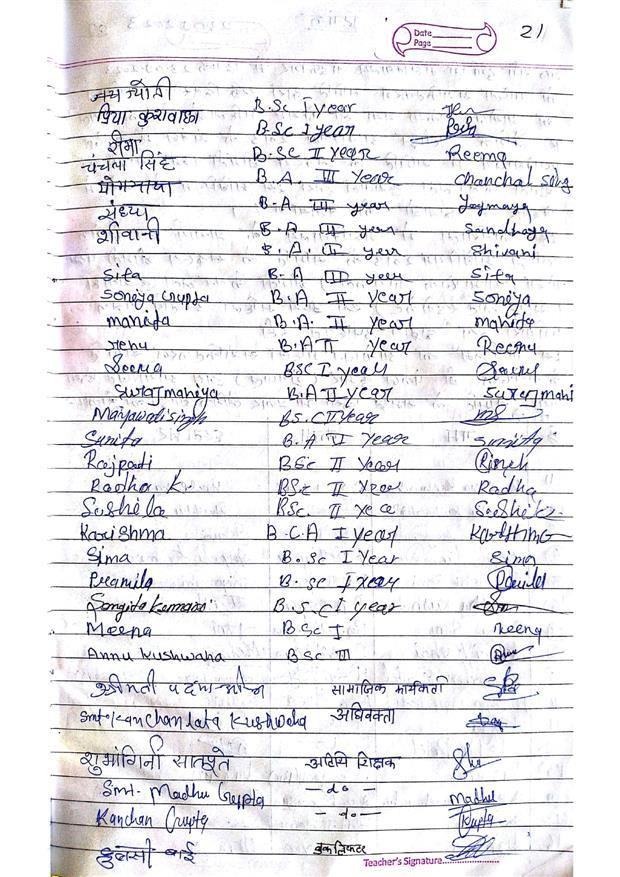 Date
Page
21
जय ज्योती B.Sc I year
प्रिया कुशवाहा B.Sc I year
रीमा B.Sc II year Reema
चंचला सिंह B.A. III year chanchal sing
योगमाया B.A III year Yogmaya
संध्या B.A III year Sandhaya
शीवानी B.A. II year Shivani
Sita B.A III year Sita
Soniya Gupta B.A II year Soniya
manita B.A. II year manita
renu B.A II year Reenu
Seema BSC I year
Surajmaniya B.A II year Surajmani
Mayawati singh BS.C II year
Sunita B.A II year Sunita
Rajpati BSc II year
Radha K. BSc II year Radha
Sushila BSc. II year Sushila
Karishma B.C.A I year Karishma
Sima B.Sc I year Sima
Pramila B.Sc I year
Sangita Kumari B.S.C I year
Meena BSc I Meena
Annu Kushwaha BSc III
श्रीमती सामाजिक कार्यकर्ता
Smt. Kanchan lata Kushwaha अधिवक्ता
शुभांगिनी सातपुते अतिथि शिक्षक
Smt. Madhu Gupta — do — Madhu
Kanchan Gupta — do — Gupta
तुलसी बाई बुक लिफ्टर
Teacher's Signature